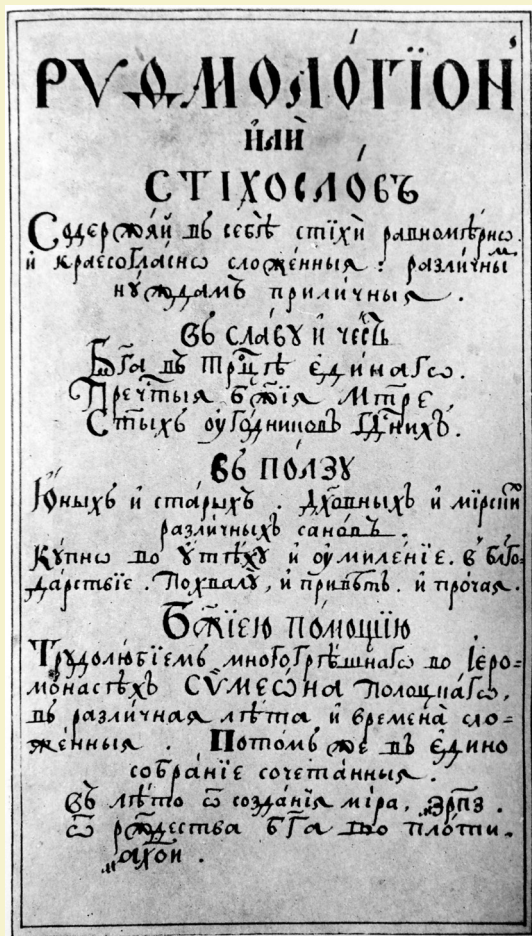 РѴѲМОЛО́ГЇОН
И҆лѝ
СТІХОСЛО́ВЪ
Содержа́й въ себѣ̀ стїхѝ равномѣ́рнѡ
и҆ краесогла́снѡ сложе́нныѧ : разли́чны̑м
ну́ждамъ прили́чныѧ .
Въ сла́ву и҆ че́сть
Бг҃а въ Трⷪ҇цѣ є҆ди́нагѡ .
Пречⷭ҇тыѧ бж҃їѧ Мт҃ре ,
Ст҃ыхъ оу҆го́дникѡвъ Гдⷭ҇нихъ .
Въ по́лзу
Ю҆́ныхъ и҆ ста́рыхъ . дх҃о́вныхъ и҆ мїрски́х
разли́чныхъ сано́въ .
Ку́пнѡ во у҆тѣ́ху и҆ оу҆миле́нїе . въ бл҃го-
да́рствїе . Похвалу̀ , и҆ привѣ́тъ . и҆ про́чаѧ .
Бж҃їею по́мощїю
Трудолю́бїемъ многогрѣ́шнагѡ во І҆еро-
мона́сѣхъ СѴМЕѠ́НА По́лоцкагѡ ,
въ разли́чнаѧ лѣ̑та и҆ времена̀ сло-
же́нныѧ . Пото́мъ же въ є҆ди́но
собра́нїе сочета́нныѧ .
Въ лѣ́то ѿ созда́нїѧ мі́ра , ҂зрп҃з .
ѿ рождества̀ бг҃а по пло́ти .
҂ахо҃и .